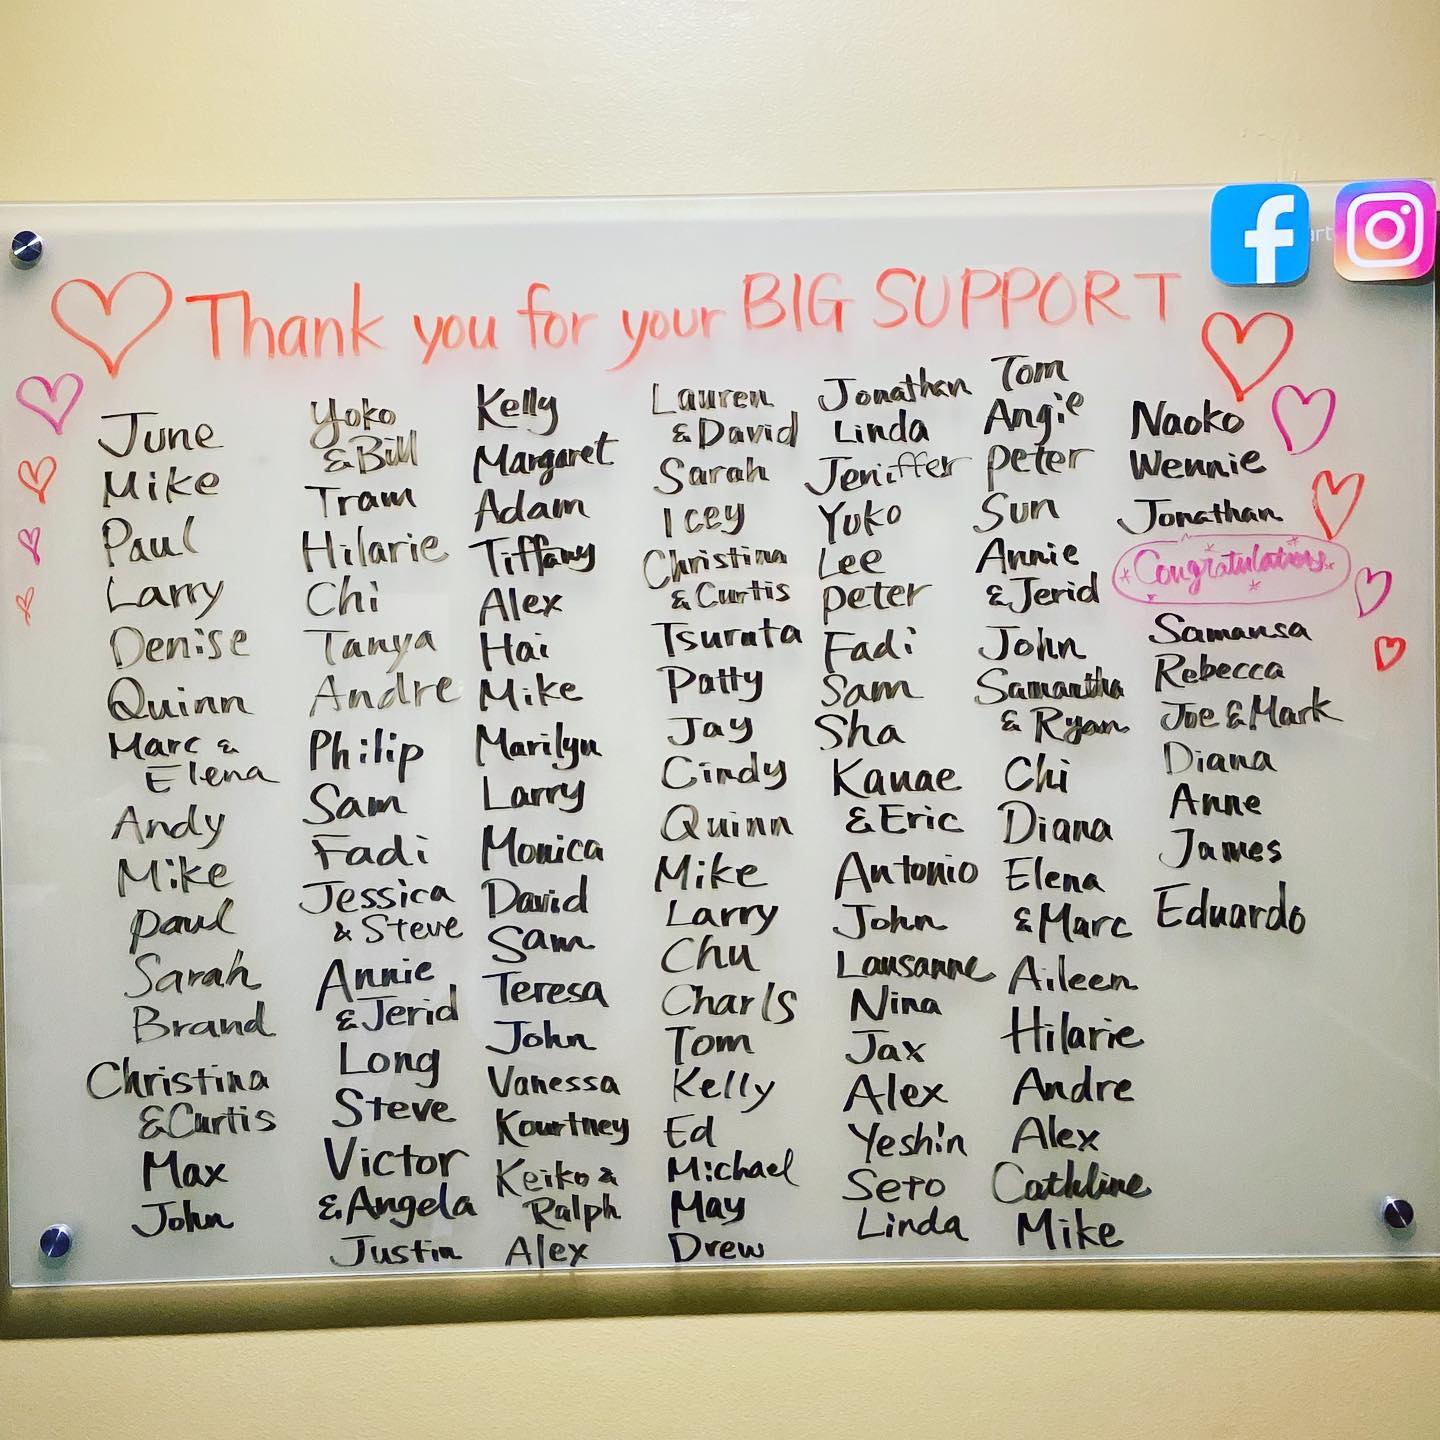 Thank you for your BIG SUPPORT
June
Mike
Paul
Larry
Denise
Quinn
Marc &
Elena
Andy
Mike
Paul
Sarah
Brand
Christina
& Curtis
Max
John
Yoko
& Bill
Tram
Hilarie
Chi
Tanya
Andre
Philip
Sam
Fadi
Jessica
& Steve
Annie
& Jerid
Long
Steve
Victor
& Angela
Justin
Kelly
Margaret
Adam
Tiffany
Alex
Hai
Mike
Marilyn
Larry
Monica
David
Sam
Teresa
John
Vanessa
Kourtney
Keiko &
Ralph
Alex
Lauren
& David
Sarah
Icey
Christina
& Curtis
Tsuruta
Patty
Jay
Cindy
Quinn
Mike
Larry
Chu
Charls
Tom
Kelly
Ed
Michael
May
Drew
Jonathan
Linda
Jeniffer
Yuko
Lee
Peter
Fadi
Sam
Sha
Kanae
& Eric
Antonio
John
Lausanne
Nina
Jax
Alex
Yeshin
Seto
Linda
Tom
Angie
Peter
Sun
Annie
& Jerid
John
Samantha
& Ryan
Chi
Diana
Elena
& Marc
Aileen
Hilarie
Andre
Alex
Cathline
Mike
Naoko
Wennie
Jonathan
Congratulations
Samansa
Rebecca
Joe & Mark
Diana
Anne
James
Eduardo